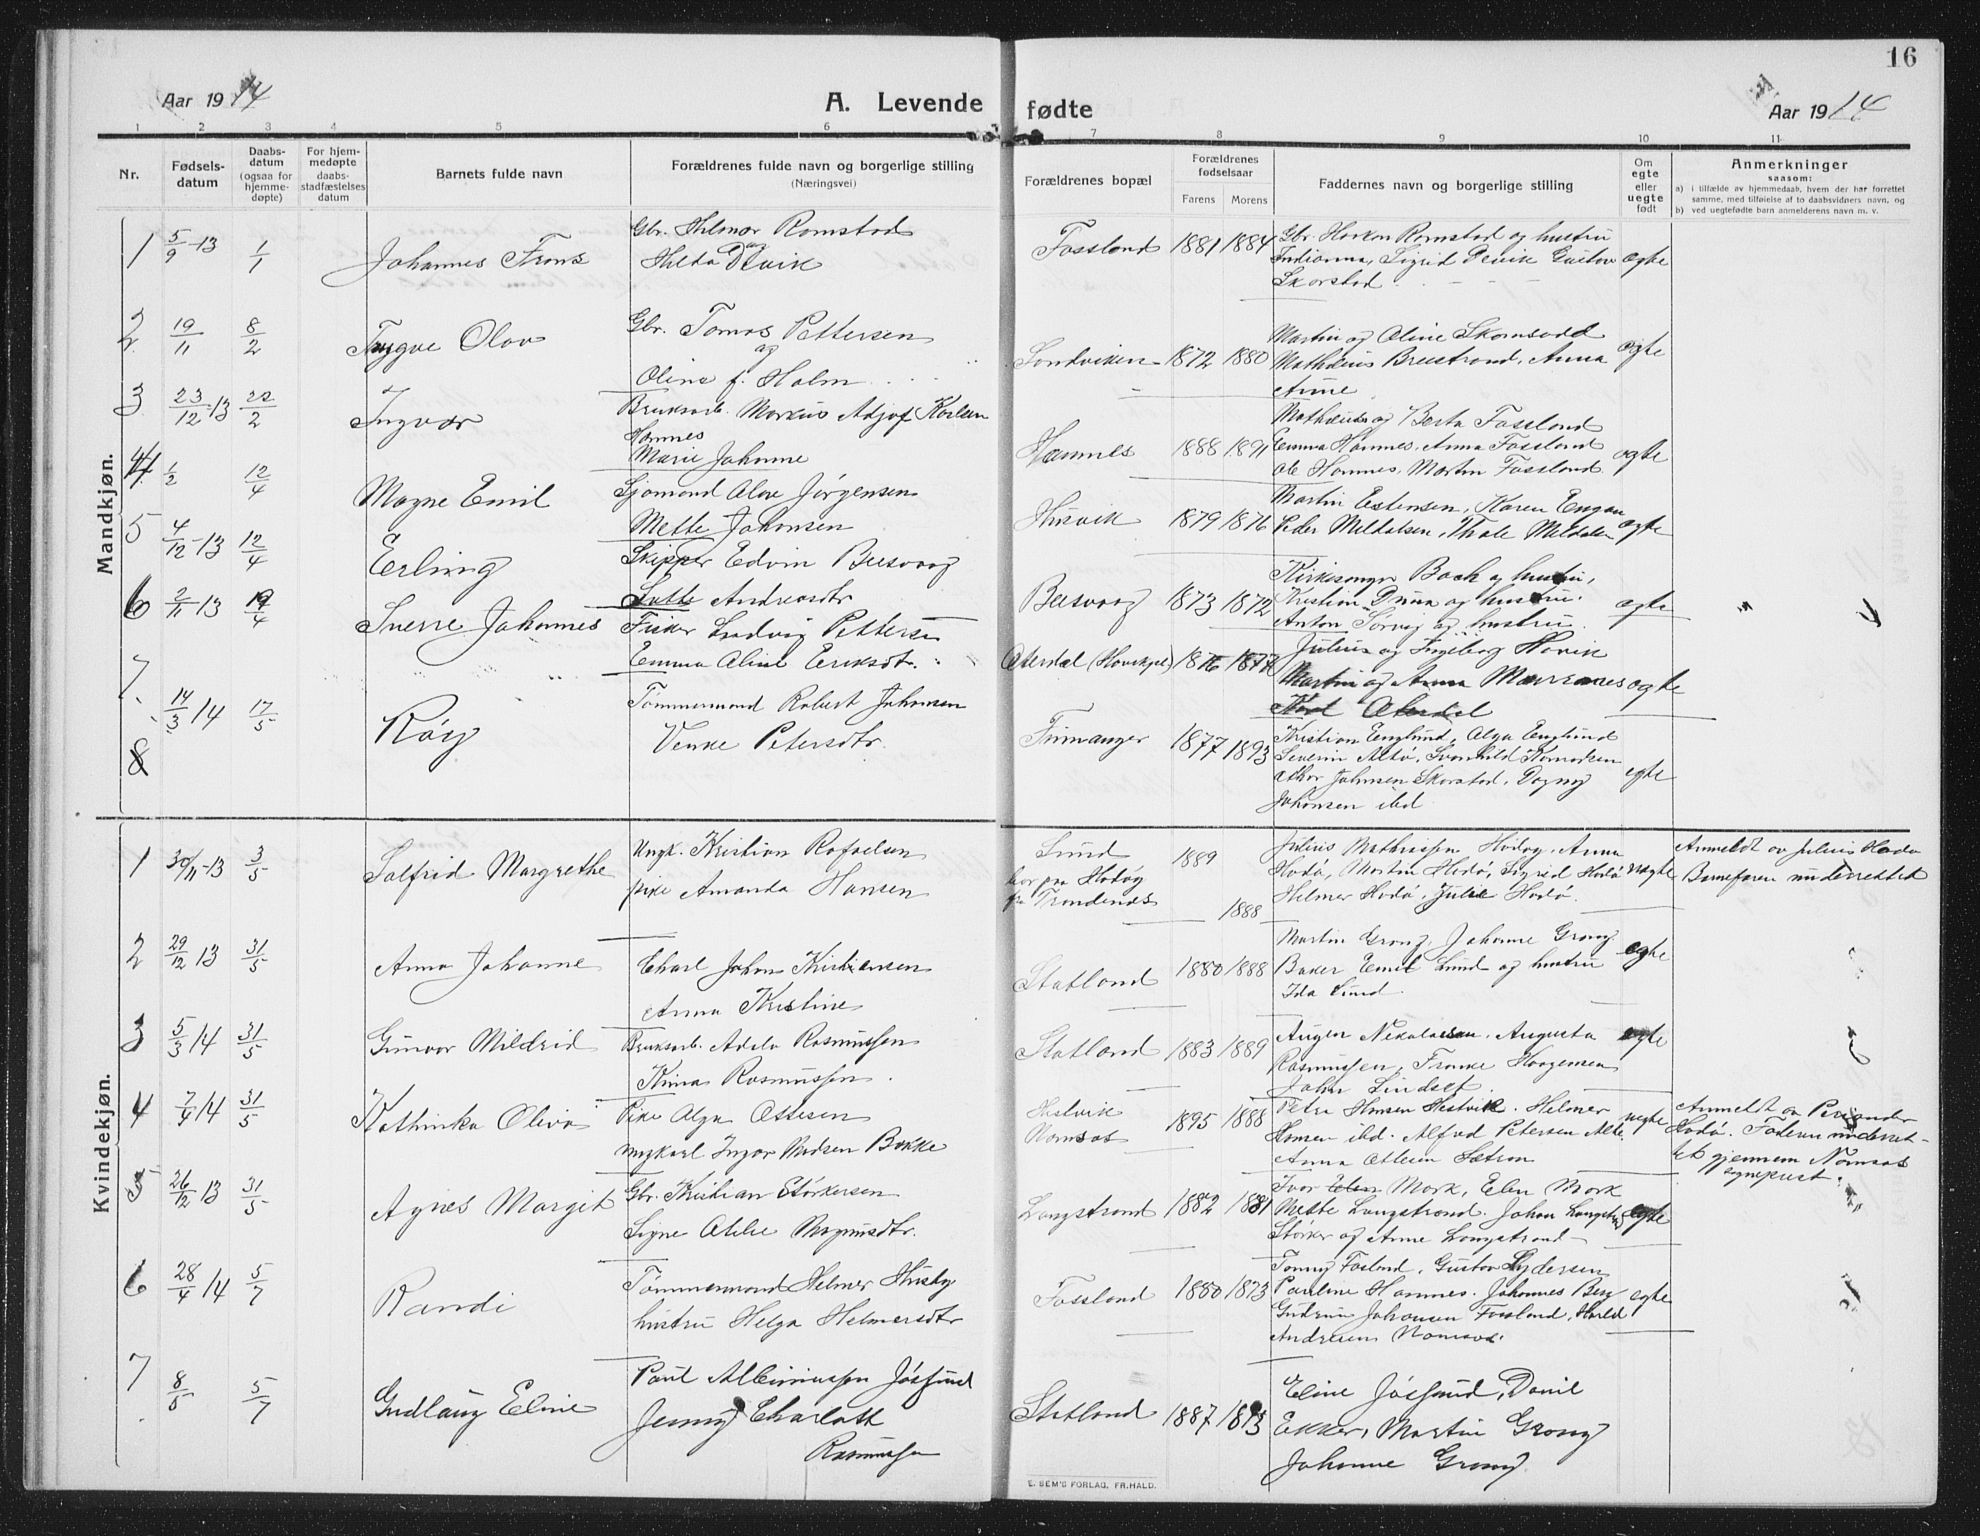 16
Aar 1914
A. Levende fødte
Aar 1914
1 2 3 4 5 6 7 8 9 10 11
Nr.
Fødsels-
datum
Daabs-
datum
(ogsaa for
hjemme-
døpte)
For hjem-
medøpte
daabs-
stadfæstelses
datum
Barnets fulde navn
Forældrenes fulde navn og borgerlige stilling
(Næringsvei)
Forældrenes bopæl
Forældrenes
fødselsaar
Farens Morens
Faddernes navn og borgerlige stilling
Om
egte
eller
uegte
født
Anmerkninger
saasom:
a) i tilfælde av hjemmedaab, hvem der har forrettet
samme, med tilføielse af to daabsvidners navn, og
b) ved uegtefødte barn anmelderens navn m. v.
Mandkjøn.
1 5/9-13 1/1 Johannes Frons
Gbr. Hilmar Romstad
og
Hilda Devik
Fossland 1881 1884
Gbr. Haakon Romstad og hustru
Indianna, Sigrid Devik Gustav
Skorstad
egte
2 19/11 8/2 Trygve Olav
Gbr. Tomas Pettersen
og
Oline f. Holm
Sondviken 1872 1880
Martin og Oline Skomsvold
Mathæus Breistrand, Anna
Anne
egte
3 23/12-13 22/2 Ingvar
Bruksarb. Markus Adjof Karlsen
Hamnes
Marie Johanne
Hamnes 1888 1891
Mathæus og Berta Fossland
Emma Hamnes, Anna Fossland
Ole Hamnes, Martin Fossland
egte
4 1/2 12/4 Magne Emil
Sjømand Alov Jørgensen
Mette Johansen
Husvik 1879 1876
Martin Estensen, Karen Engan
Peder Meldalsen, Thale Meldalen
egte
5 4/12-13 12/4 Erling
Skipper Edvin Beisvaag
Andreasdtr
Beisvaag 1873 1872
Kirkesanger Bach og hustru,
Kristian Duna og hustru.
Anton Sørvig og hustru.
egte
6 2/11-13 19/4 Sverre Johannes
Fisker Ludvig Pettersen
Emma Oline Eriksdtr.
Oterdal 1876 1877
Julius og Ingeborg Hovik
Martin og Anna
Karl Oterdal
egte
7 14/3 14 17/5 Røy
Tømmermand Robert Johansen
Venke Petersdtr.
Finnanger 1877 1893
Kristian Englund, Olga Englund
Severin Altø, Svanhild Konradsen
Johnsen Skorstad, Dagny
Johansen ibd
egte
8
Kvindekjøn.
1 30/11-13 3/5 Solfrid Margrethe
Ungk. Kristian Rafaelsen
pike Amanda Hansen
Lund
bor paa Hodøy
fra Trondenes
1889
1888
Julius Mathiassen Hodøy, Anna
Hodø, Martin Hodø, Sigrid Hodø
Helmer Hodø, Julie Hodø.
uegte
Anmeldt av Julius Hodø
Barnefaren underrettet
2 29/12 13 31/5 Anna Johanne
Charl Johan Kristiansen
Anna Kristine
Statland 1880 1888
Martin Grong, Johanne Grong
Baker Emil Lund og hustru
Ida Lund.
egte
3 5/3 14 31/5 Gunvor Mildrid
Bruksarb. Adolv Rasmussen
Kima Rasmussen.
Statland 1883 1889
Augen Nikolaisen, Augusta
Rasmussen, Haagensen
John Lindset
egte
4 7/4 14 31/5 Kathinka Oliva
Pike Olga Ottesen
ungkarl Ingar Madsen Bakke
Hestvik
Namsos
1895 1888
Petra Hansen Hestvik. Helmer
Hansen ibd. Alfred Petersen
Anna Ottesen Sætran
uegte
Anmeldt av
Hodø. Faderen underret-
et gjennem Namsos
sogneprest.
5 26/12-13 31/5 Agnes Margit
Gbr. Kristian Størkersen
Signe Otelie Magnusdtr.
Langstrand 1882 1881
Ivar Mork, Elen Mork
Mette Langstrand. Johan
Størker og Anne Langstrand
egte
6 28/4 14 5/7 Randi
Tømmermand Helmer Husby
hustru Helga Helmersdtr
Fossland 1880 1873
Tonny Fosland, Gustav Lydersen
Pauline Hamnes. Johannes Berg
Gudrun Johansen Fossland, Harald
Andresen Namsos.
egte
7 8/5 5/7 Gudlaug Eline
Paul Albinussen Jøssund
Jenny Charlotte
Rasmussen
Statland 1887 1873
Eline Jøssund, Daniel
Ekker, Martin Grong
Johanne Grong.
E. SEM'S FORLAG, FR.HALD.